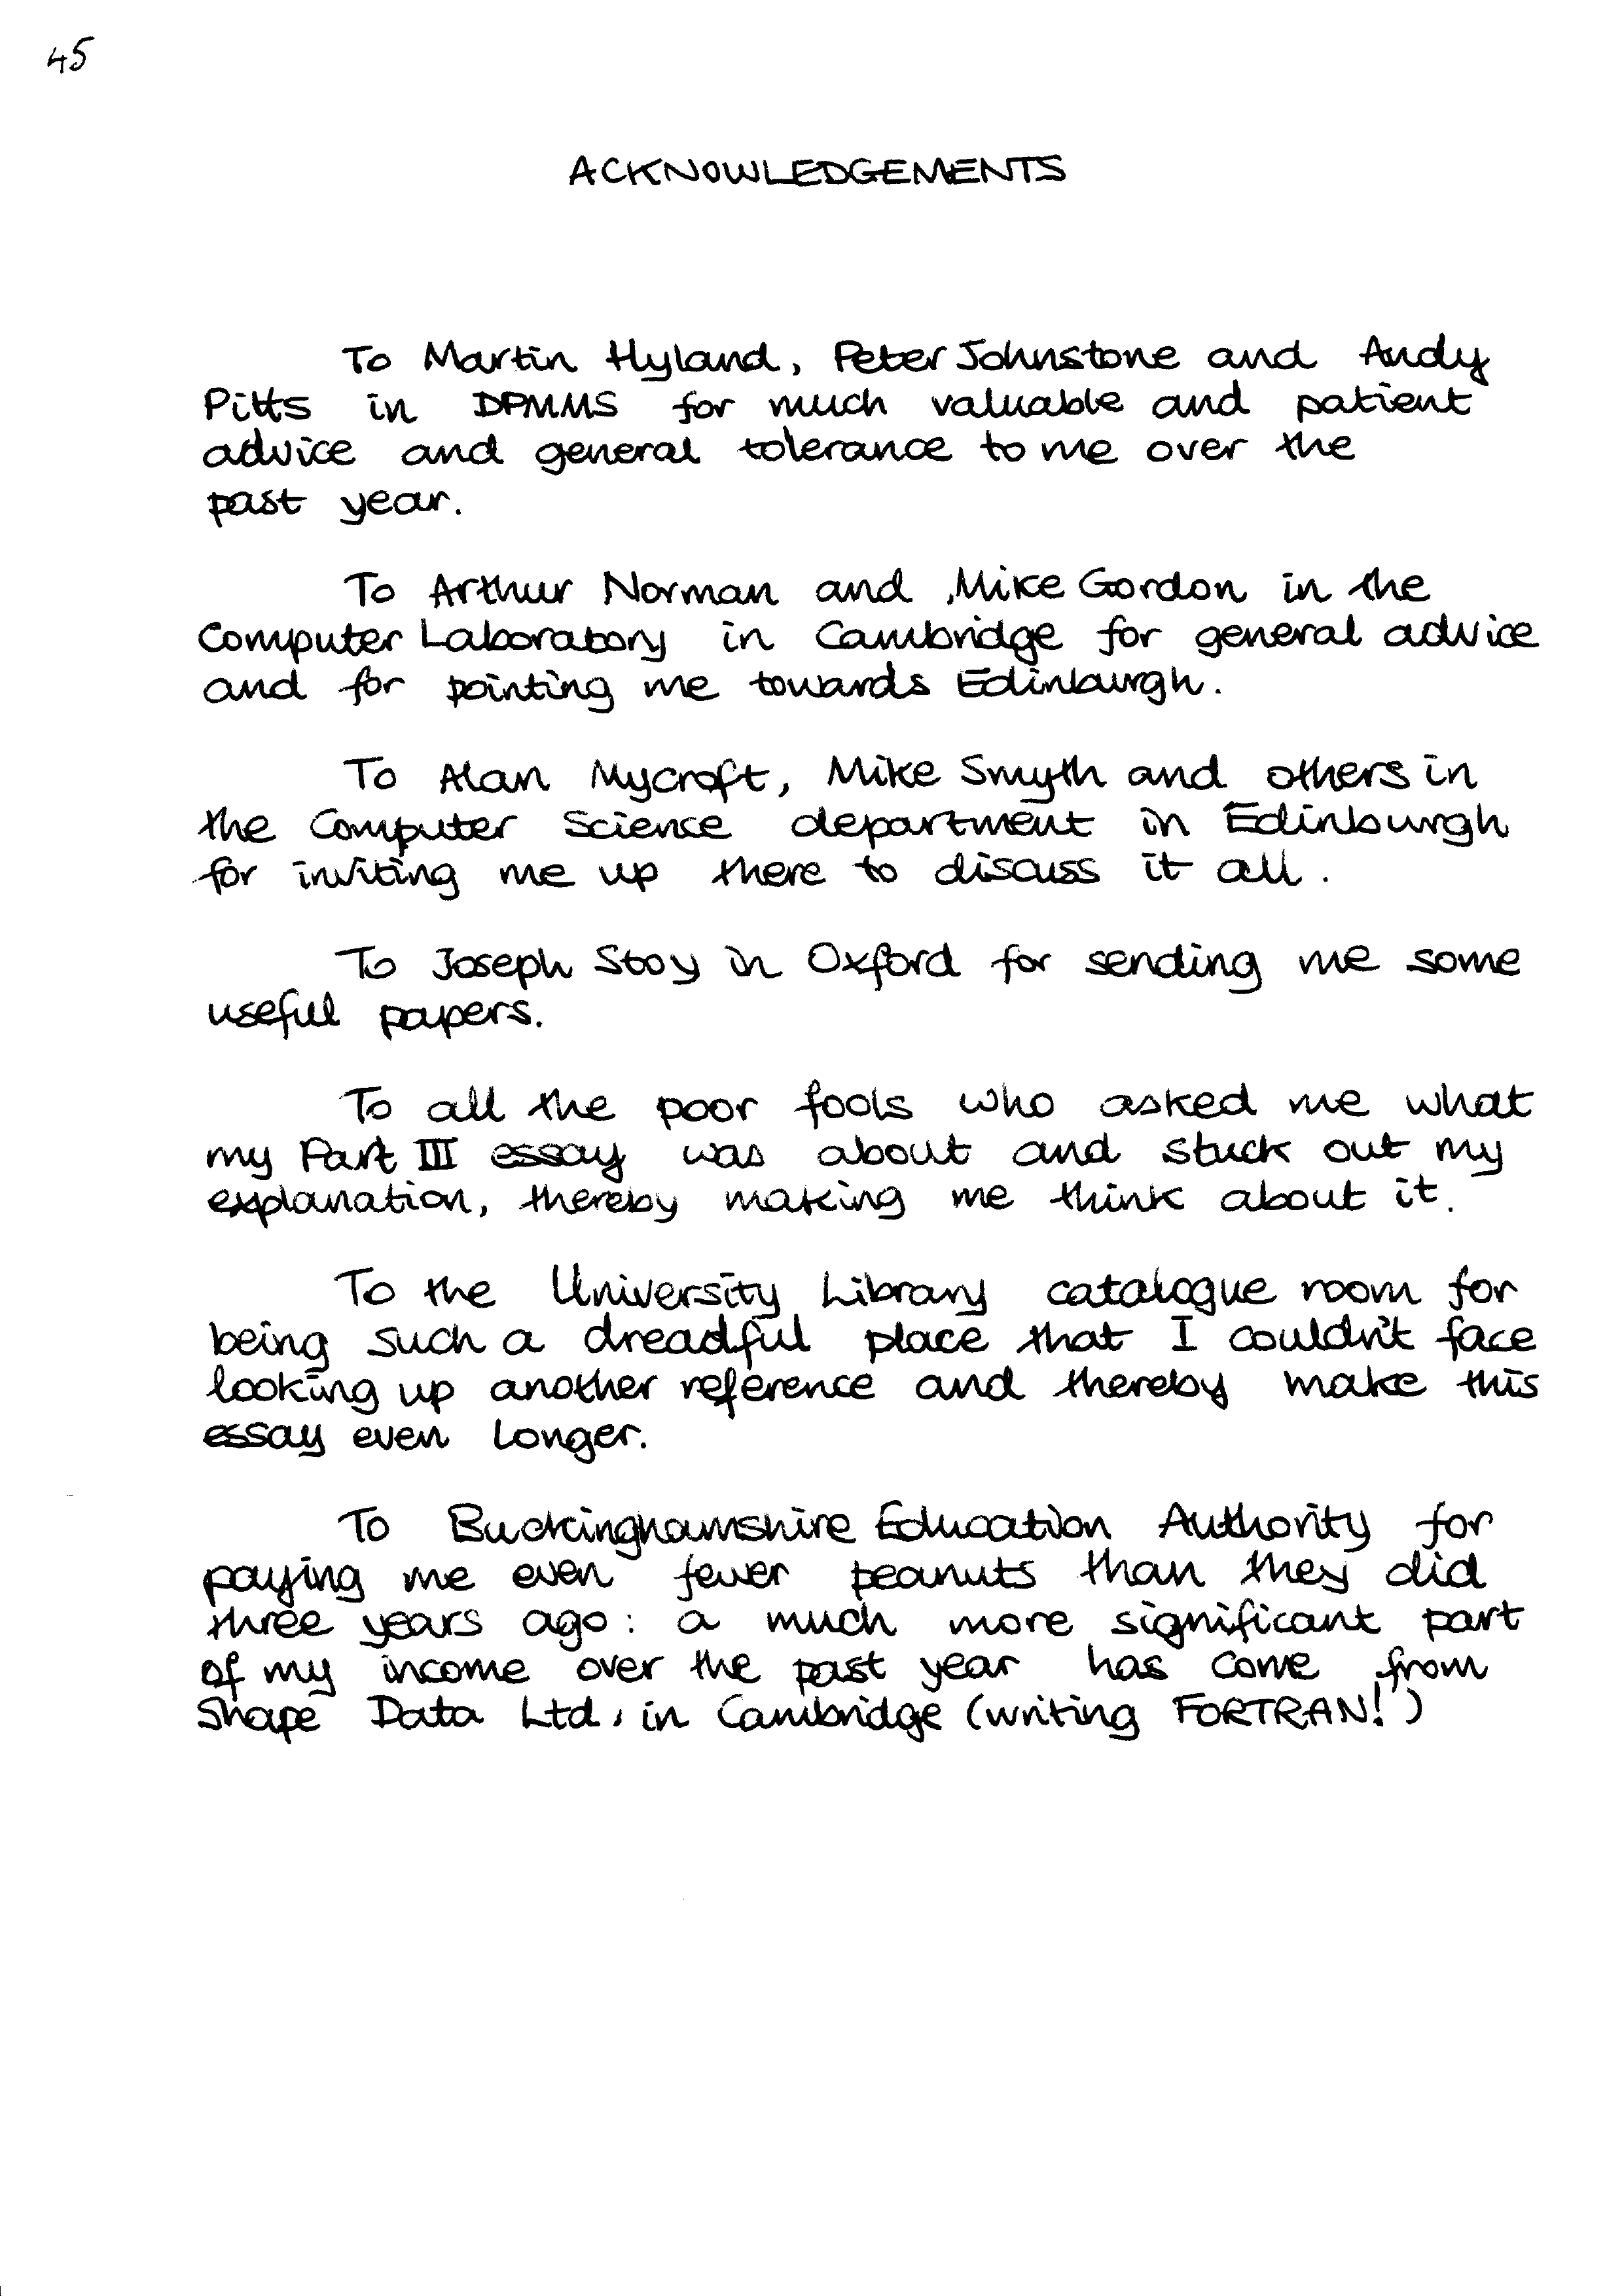 45
ACKNOWLEDGEMENTS
To Martin Hyland, Peter Johnstone and Andy
Pitts in DPMMS for much valuable and patient
advice and general tolerance to me over the
past year.
To Arthur Norman and Mike Gordon in the
Computer Laboratory in Cambridge for general advice
and for pointing me towards Edinburgh.
To Alan Mycroft, Mike Smyth and others in
the Computer Science department in Edinburgh
for inviting me up there to discuss it all.
To Joseph Stoy in Oxford for sending me some
useful papers.
To all the poor fools who asked me what
my Part III essay was about and stuck out my
explanation, thereby making me think about it.
To the University Library catalogue room for
being such a dreadful place that I couldn't face
looking up another reference and thereby make this
essay even longer.
To Buckinghamshire Education Authority for
paying me even fewer peanuts than they did
three years ago: a much more significant part
of my income over the past year has come from
Shape Data Ltd, in Cambridge (writing FORTRAN!)